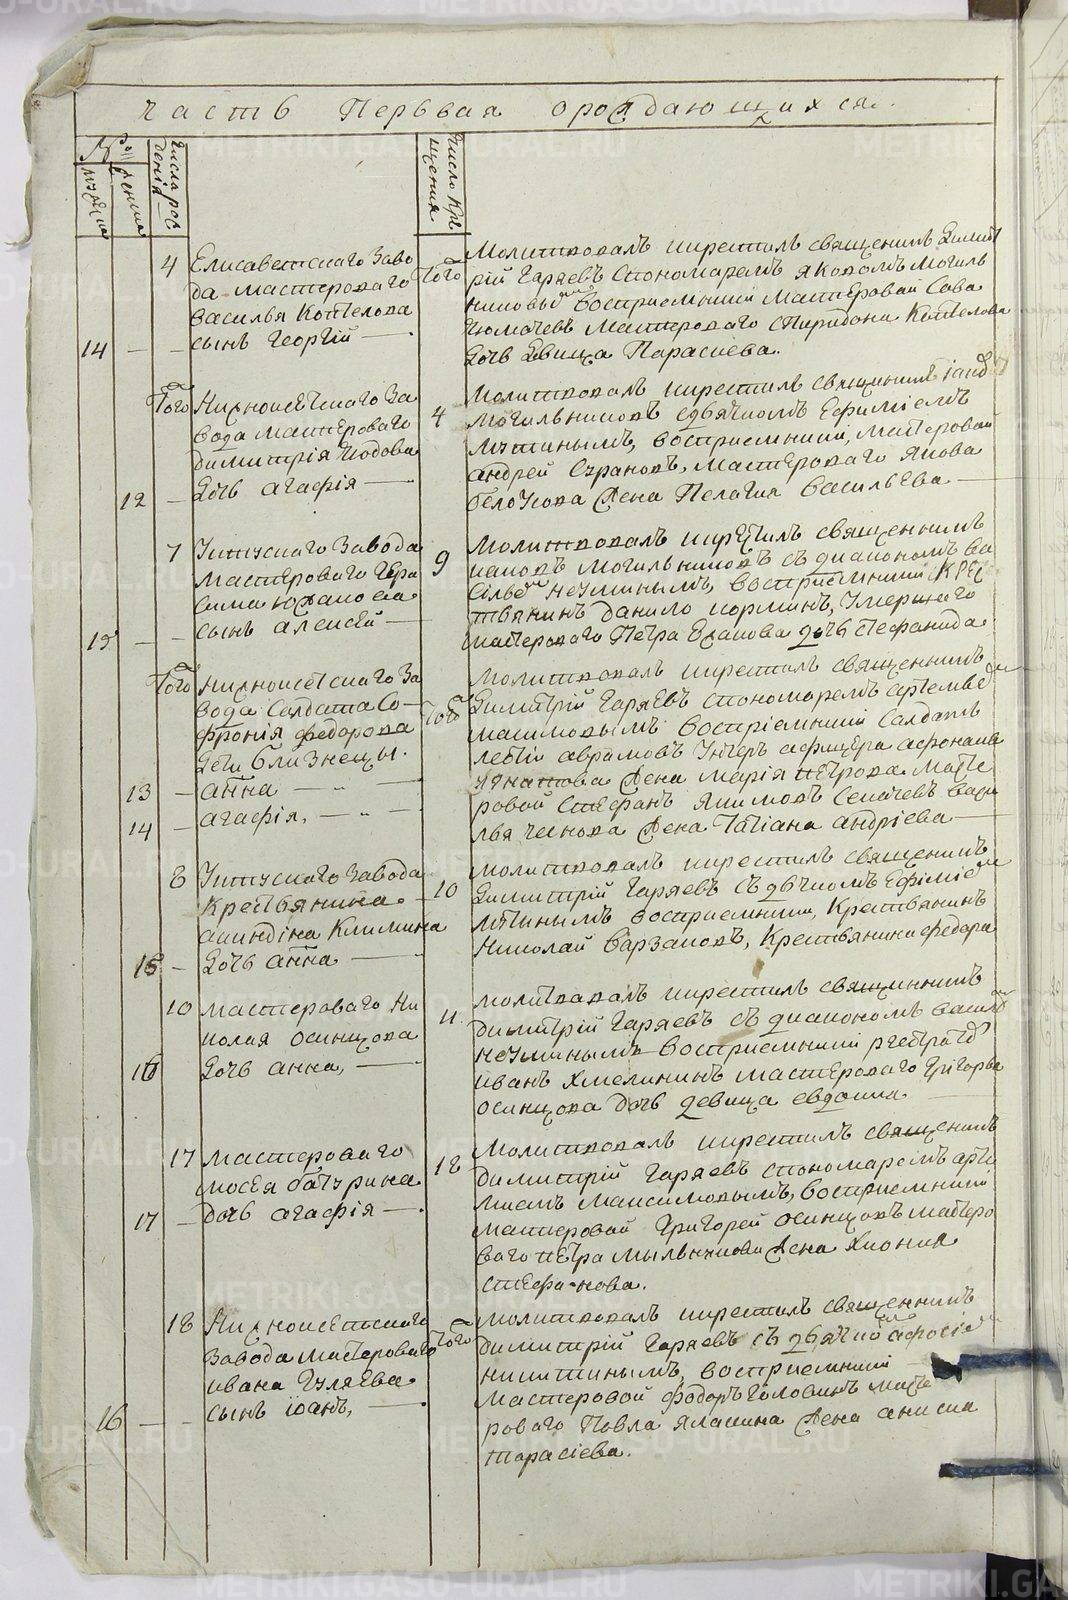 часть Первая ораждающихся.
№ Рожденія
мужеска
женска
Числа рождения
Число крещения
4 Елисаветскаго Заво
да мастероваго
Василья Копелова
14 сынъ Георгій
Того
Молитвовалъ икрестилъ священникъ Димит
рій Гаряевъ Спономаремъ яковомъ Могиль
никовымъ Восприемники Мастеровай Сава
Мастероваго Спиридона Копелова
Дочь Девица Парасиева.
Того Нижноисетскаго За
вода мастероваго
димитрія
12 Дочь агафія
4
Молитвовалъ икрестилъ священникъ
Могильниковъ сдьячкомъ Ефиміемъ
восприемники, мастеровай
андрей мастероваго якова
белоусова жена Пелагия Васильева
7 Уктускаго Завода
мастероваго Гера
сима
15 сынъ алексей
9
Молитвовалъ икрестилъ священникъ
иаковъ Могильниковъ съ диакономъ ва
сильемъ восприемники крес
твянинъ данило кормин, умершаго
мастероваго Петра дочь Стефанида
Того нижноисетскаго За
вода Салдата Со
фронія федорова
Дети близнецы.
13 анна
14 агафія,
Того
молитвовалъ икрестилъ священникъ
Димитрій Гаряевъ спономаремъ артемьемъ
максимовымъ Восприемники Салдатъ
аврамовъ Унтеръ афицера афонасья
жена Марія петрова масте
ровой Стефанъ якимовъ васи
лья жена Татіана андріева
8 Уктускаго Завода
Крестьянина
акиндіна Климина
15 Дочь анна
10
молитвовалъ икрестилъ священникъ
Димитрій Гаряевъ съ дьячкомъ Ефиміемъ
восприемники, Крествянинъ
Николай Варзаковъ, Крествянина федора
10 мастероваго Ни
колая осинцова
16 Дочь анна,
11
молитвовалъ икрестилъ священникъ
димитрій Гаряевъ съ диакономъ василь
восприемники
иванъ Хмелининъ мастероваго Григорья
осинцова дочь девица евдокия
17 мастероваго
мосея батурина
17 дочь агафія
18
Молитвовалъ икрестилъ священникъ
димитрій Гаряевъ спономаремъ арте
миемъ максимовымъ, восприемники
мастеровай Григорей осинцовъ мастеро
ваго петра мыльникова жена Хиония
стефанова.
18 Нижноисетскаго
Завода мастероваго
ивана Гуляева
16 сынъ іоанъ,
Того
молитвовалъ икрестилъ священникъ
димитрій Гаряевъ съ дьячкомъ
никитинымъ, восприемники
мастеровой федоръ Головинъ масте
роваго Павла ялакина жена анисия
тарасіева.